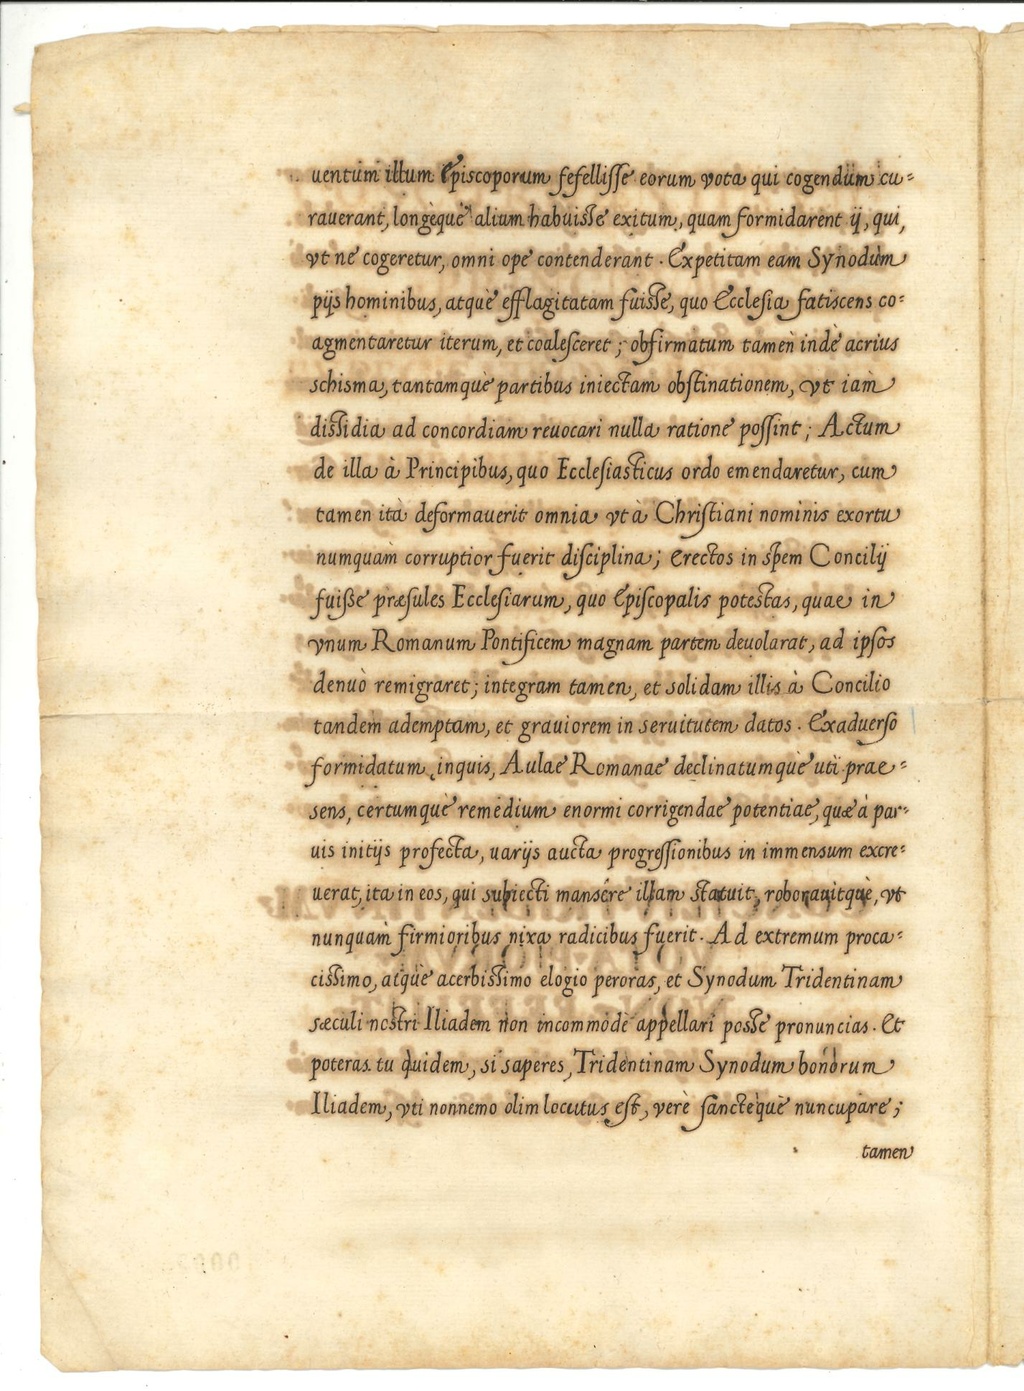 uentùm illum Episcoporum fefellisse eorum vota qui cogendùm cu=
rauerant, longèquè alium habuisse exitum, quam formidarent ij, qui,
vt ne cogeretur, omni ope contenderant. Expetitam eam Synodùm
pijs hominibus, atquè efflagitatam fuisse, quo Ecclesia fatiscens co=
agmentaretur iterum, et coalesceret; obfirmatum tamèn indè acrius
schisma, tantamquè partibus iniectam obstinationem, vt iàm
dissidia ad concordiam reuocari nulla ratione possint; Actum
de illa à Principibus, quo Ecclesiasticus ordo emendaretur, cum
tamen ità deformauerit omnia vt à Christiani nominis exortu
numquàm corruptior fuerit disciplina; Erectos in spem Concilij
fuiße præsules Ecclesiarum, quo Episcopalis potestas, quae in
vnum Romanum Pontificem magnam partem deuolarat, ad ipsos
denuò remigraret; integram tamen, et solidam illis à Concilio
tandèm ademptam, et grauiorem in seruitutem datos. Exaduerso
formidatum, inquis, Aulae Romanae declinatumquè uti prae=
sens, certumquè remedium enormi corrigendae potentiae, quæ à par=
uis initijs profecta, uarijs aucta progressionibus in immensum excre=
uerat, ita in eos, qui subiecti mansêre illam statuit, roborauitquè, vt
nunquàm firmioribus nixa radicibus fuerit. Ad extremum proca=
cissimo, atquè acerbissimo elogio peroras, et Synodum Tridentinam
sæculi nostri Iliadem non incommodè appellari posse pronuncias. Et
poteras tu quidem, si saperes, Tridentinam Synodum bonorum
Iliadem, vti nonnemo olim locutus est, verè sanctèquè nuncupare;
tamen